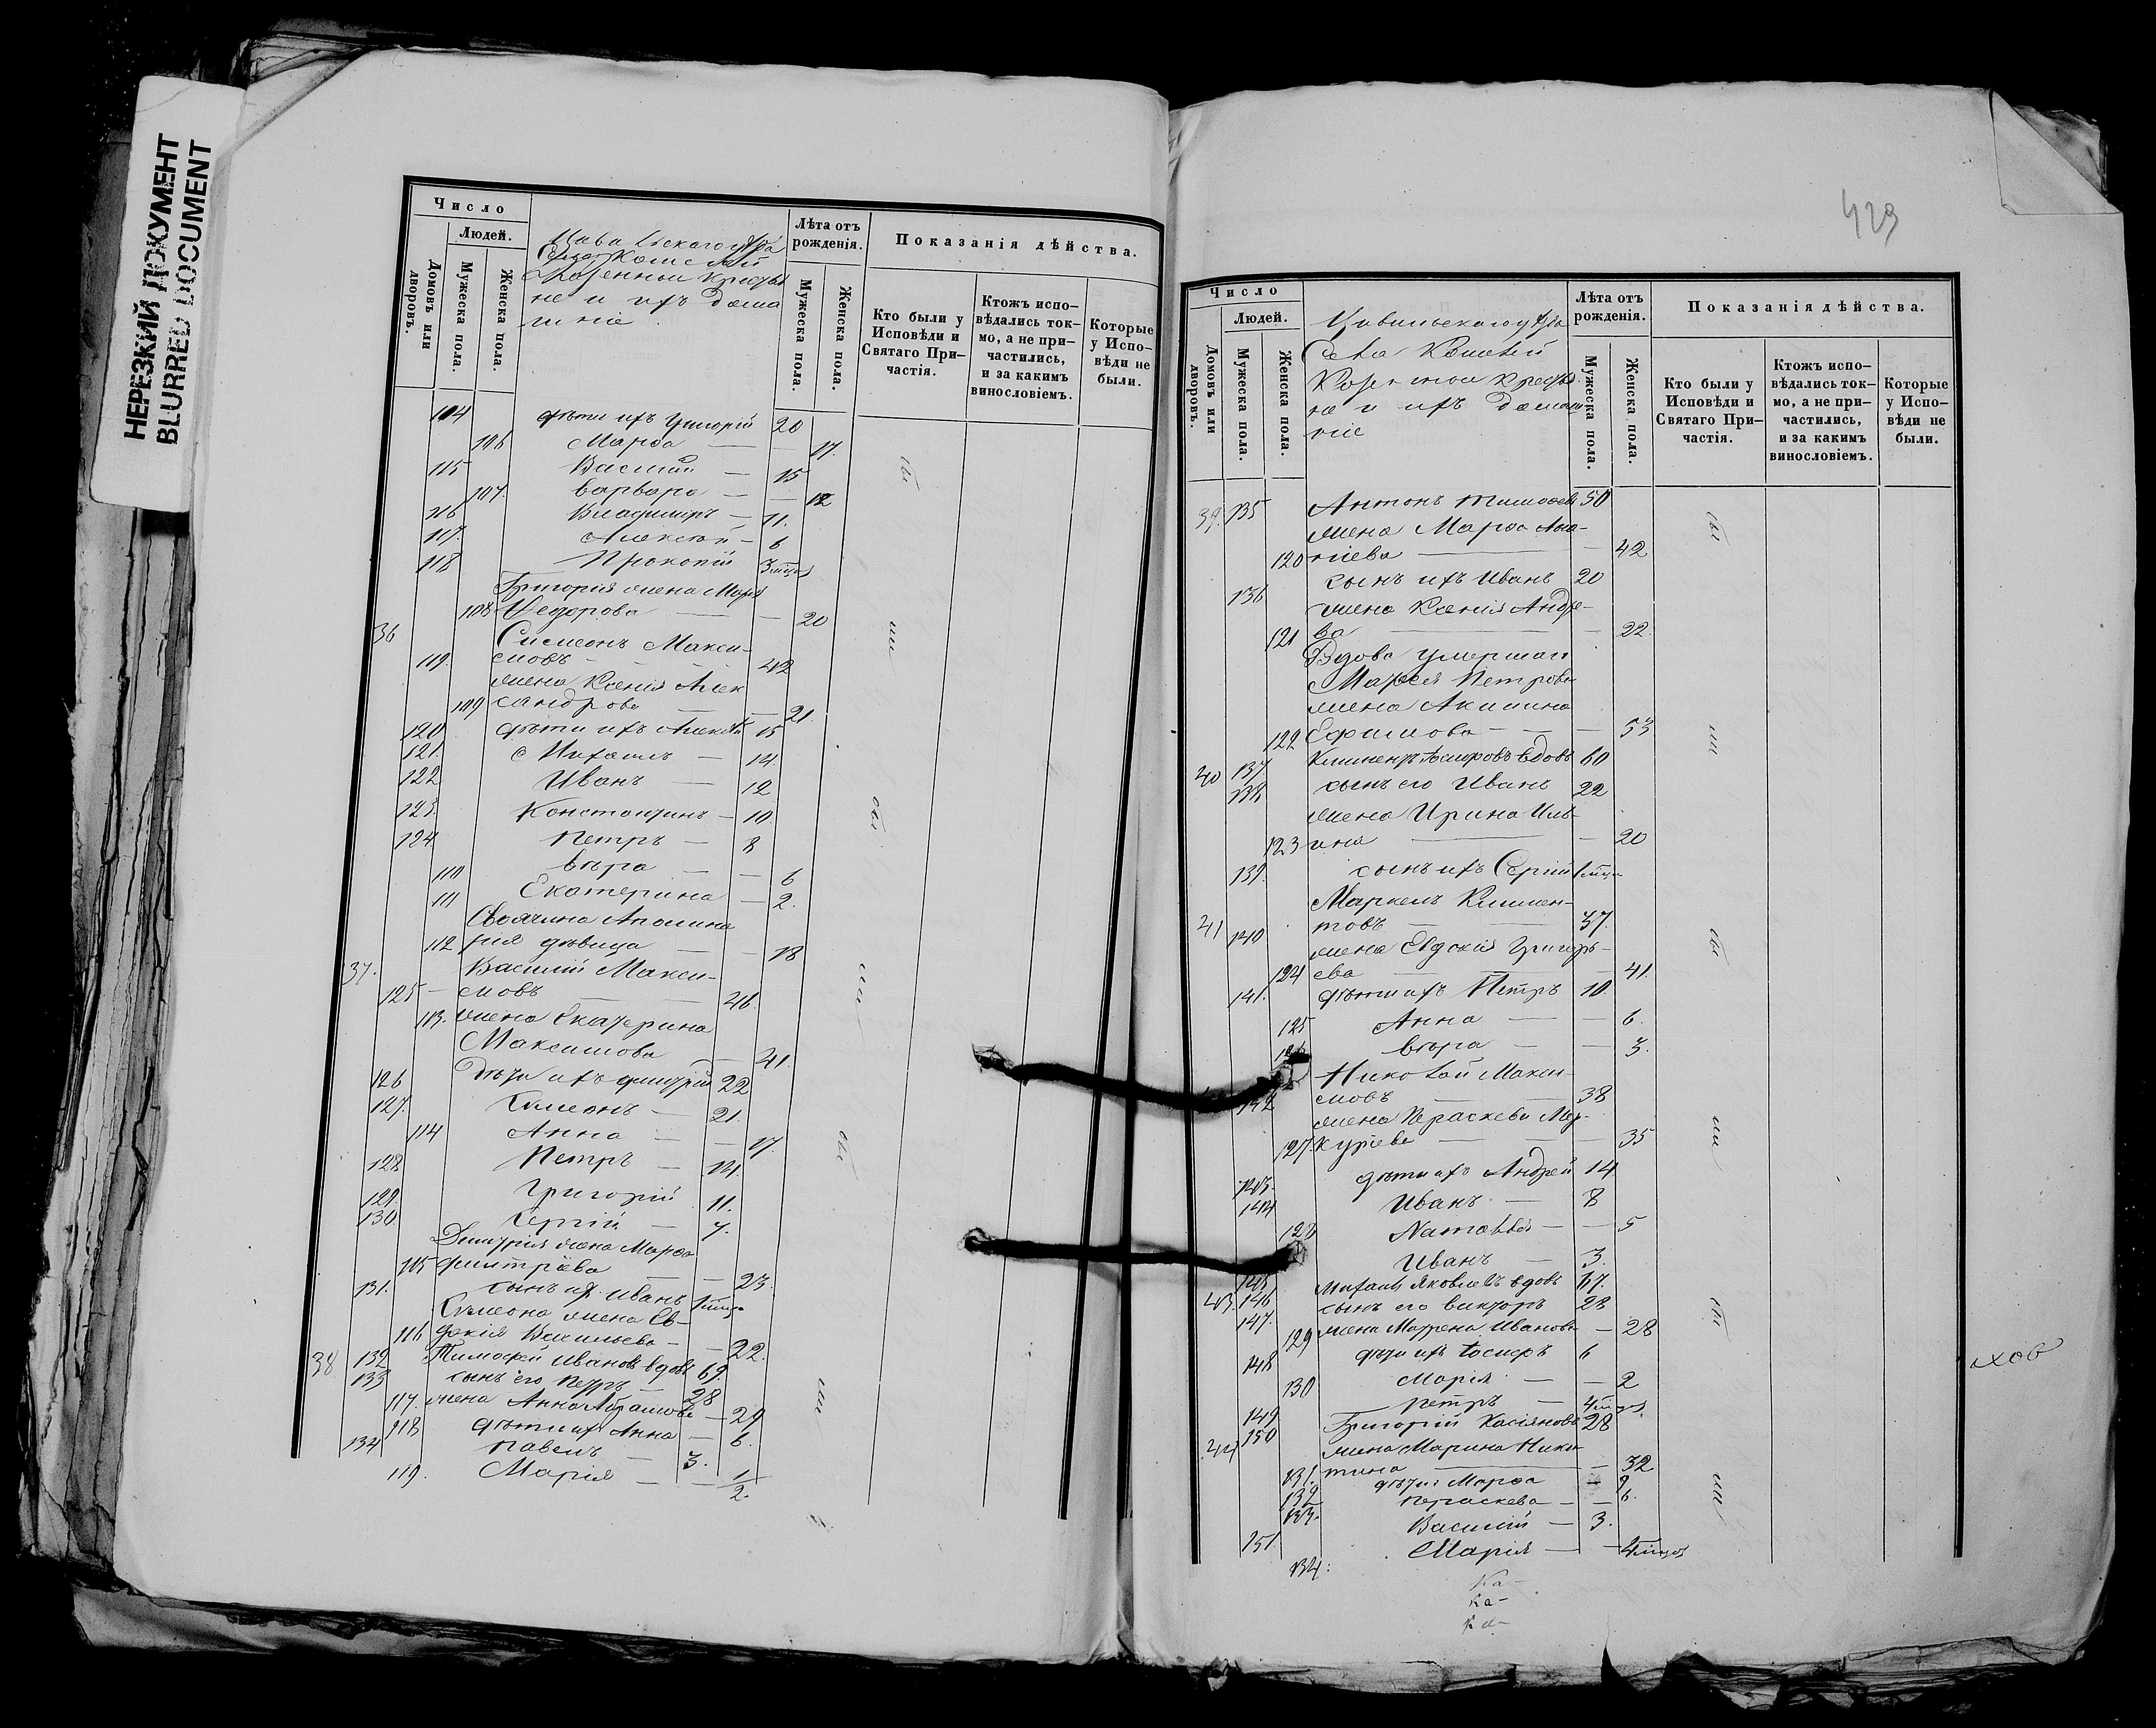 НЕРЕЗКИЙ ДОКУМЕНТ
BLURRED DOCUMENT
Число
Людей.
Домовъ или дворовъ.
Мужеска пола.
Женска пола.
Лѣта отъ рожденія.
Мужеска пола.
Женска пола.
Показанія дѣйства.
Кто были у Исповѣди и Святаго Причастія.
Ктожъ исповѣдались токмо, а не причастились, и за какимъ винословіемъ.
Которые у Исповѣди не были.
не и ихъ дома
104 дѣти ихъ Григорій 20
106 Марѳа — — 17.
115 Василій — 15
107. Варвара — — 12
116 Владимиръ — 11.
117. Алексѣй — 6
118 Прокопій 3 мѣца
Григорія жена Марѳа
108 Ѳедорова — — 20
36 Симеонъ Макси-
119. мовъ — 42
жена Ксенія Алек
109 сандрова — — 21.
120 дѣти ихъ Алексѣй 15
121. Михаилъ — 14
122 Иванъ — 12
123. Константинъ — 10
124 Петръ — 8
110 Вѣра — — 6
111 Екатерина — 2.
Своячина Аполина
112 рія дѣвица — — 18
37. Василій Макси-
125 — мовъ — 46
113. жена Екатерина
Максимова — 41.
126 Дѣти ихъ Димитрій 22
127. Симеонъ — 21.
114 Анна — — 17.
128 Петръ — 14.
129 Григорій 11.
130. Сергій — 7.
Димитрія жена Марѳа
115 Димитріева — — 23.
131. сынъ их. Иванъ 1 мѣца
Симеона жена Ев-
116 докія Васильева — — 22.
38 132 Тимоѳей Ивановъ вдовъ 69.
133 сынъ его Петръ — 28
117. жена Анна Абрамова — 29
118 дѣти их Анна — 6.
134 Павелъ — 3.
119. Марія — — 1/2.
429
Число
Людей.
Домовъ или дворовъ.
Мужеска пола.
Женска пола.
Цивильскаго уѣзда
Села Кошелей
не и ихъ домаш
ніе
Лѣта отъ рожденія.
Мужеска пола.
Женска пола.
Показанія дѣйства.
Кто были у Исповѣди и Святаго Причастія.
Ктожъ исповѣдались токмо, а не причастились, и за какимъ винословіемъ.
Которые у Исповѣди не были.
39. 135 Антонъ Тимоѳеев 50
жена Марѳа Ана-
120 ніева — — 42
136 сынъ ихъ Иванъ 20
жена Ксенія Андре-
121 ва — — 22.
Вдова умершаго
Петрова
жена Акилина
122 Ефимова — — 53
40 137. Климентъ вдовъ 60
138 сынъ его Иванъ 22
жена Ирина Иль-
123 ина — — 20
139. сынъ ихъ Сергій 1 мѣца
Маркелъ Климен-
41 140 товъ — 37.
жена Евдокія Григорь-
124 ева — — 41.
141. дѣти ихъ Петръ 10.
125 Анна — — 6.
126 Вѣра — — 3.
Николай Макси-
142 мовъ — 38
жена Параскева Мер-
127. куріева — — 35
143. дѣти ихъ Андрей 14
144 Иванъ — 8
128 Наталія — — 5
145 Иванъ — 3.
43. 146 Михаилъ Яковлевъ вдовъ 67.
147. сынъ его Викторъ 28
129 жена Матрена Иванова — 28
148 дѣти ихъ Іосифъ 6
130 Марія — — 2
149 Петръ — 4 мѣцов
44 150 Григорій Касіяновъ 28
жена Марина Ники
131. тина — 32
132 дѣти Марѳа — 9
133. Параскева — — 6.
151. Василій — 3.
134. Марія — — 4 мѣцов
Ка-
Ка-
ка-